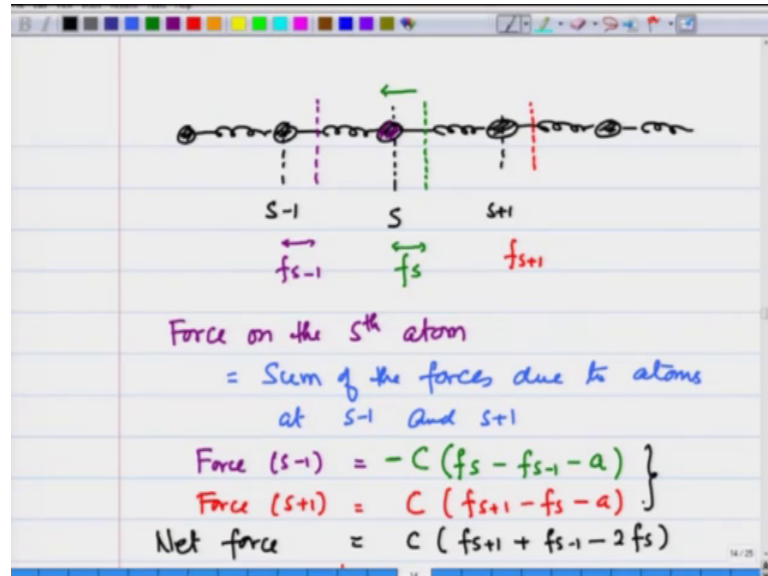 s-1 s s+1
fs-1 fs fs+1
Force on the sth atom
= Sum of the forces due to atoms
at s-1 and s+1
Force (s-1) = -C (fs - fs-1 - a)
Force (s+1) = C (fs+1 - fs - a)
Net force = C (fs+1 + fs-1 - 2fs)
14/25